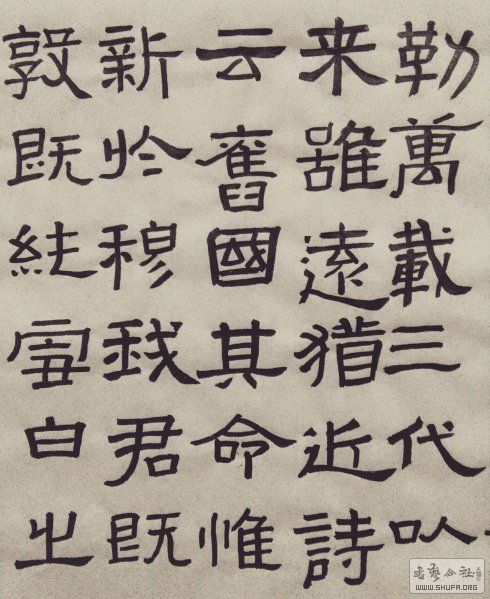 勒萬載三代以
来雖遠猶近詩
云舊國其命惟
新於穆我君既
敦既純雪白之
书艺公社
WWW.SHUFA.ORG